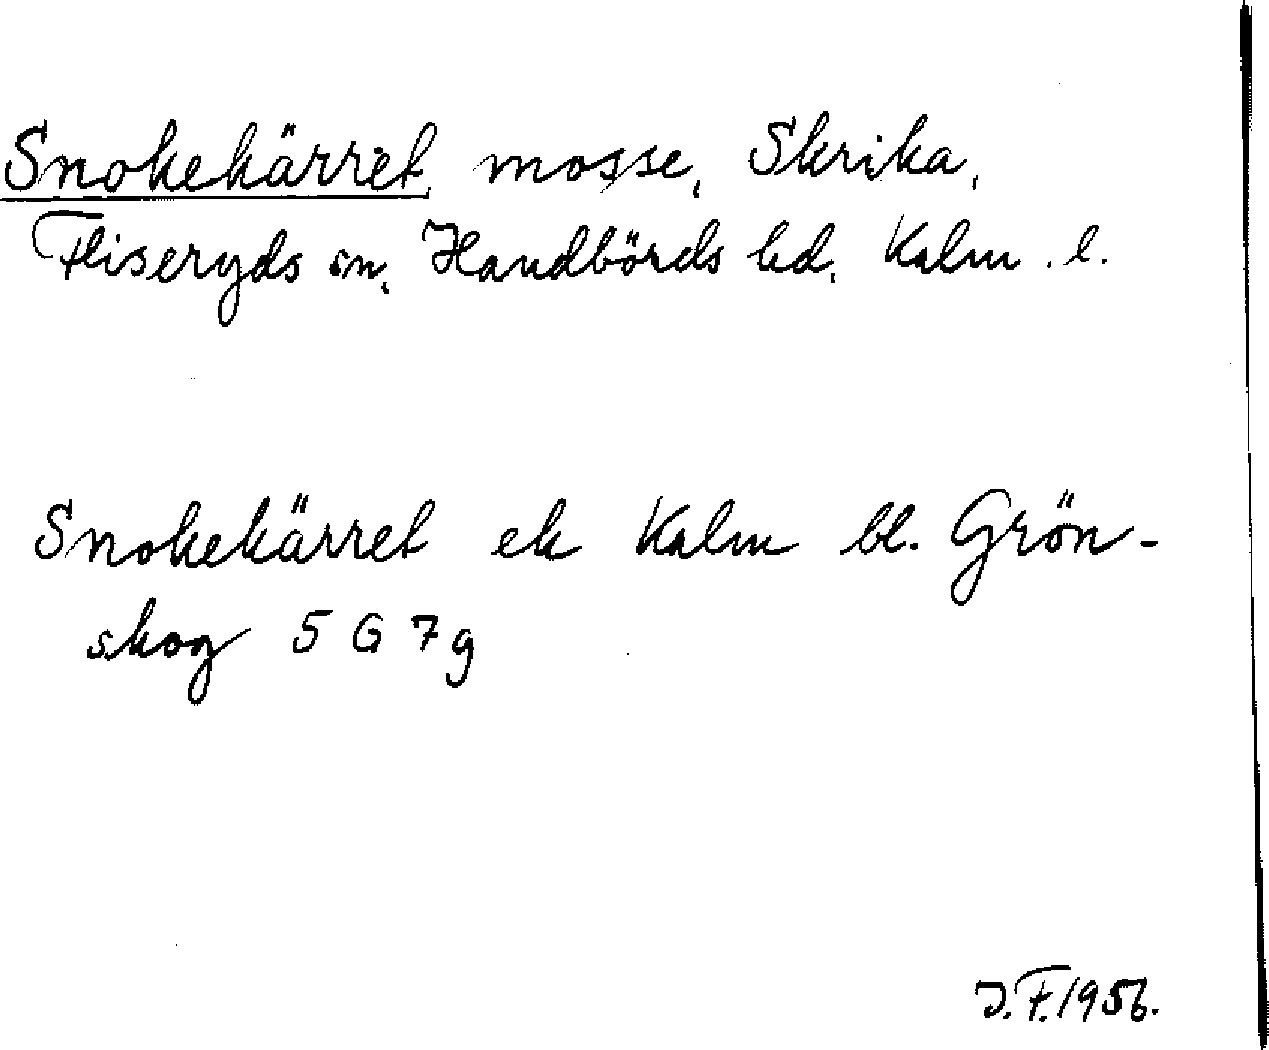 Snokekärret, mosse, Skrika,
Fliseryds sn, Handbörds hd, Kalm. l.
Snokekärret ek Kalm bl. Grön-
skog 5 G 7 g
J.F. 1956.